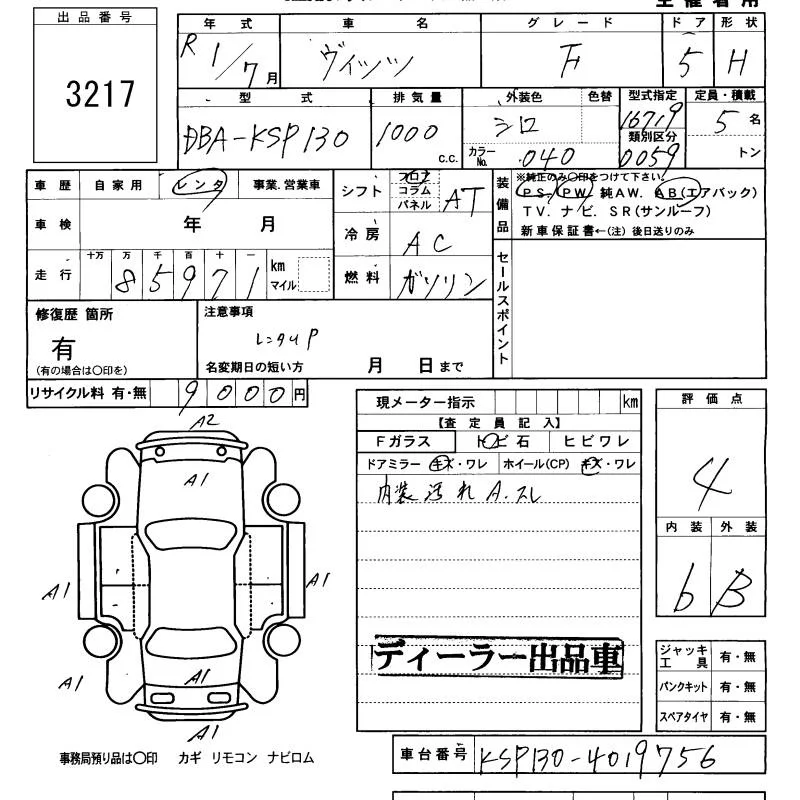 出品番号
3217
年式 車名 グレード ドア 形状
R 1/7月 ヴィッツ F 5 H
型式 排気量 外装色 色替 型式指定 定員・積載
DBA-KSP130 1000 c.c. シロ 16719 5名
カラーNo. 040 類別区分 0059 トン
車歴 自家用 レンタ 事業.営業車
車検 年 月
走行 十万 万 千 百 十 一
85971 km マイル
シフト フロア コラム パネル AT
冷房 AC
燃料 ガソリン
装備品 ※純正のみ〇印をつけて下さい。
PS. PW. 純AW. AB(エアバック)
TV. ナビ. SR(サンルーフ)
新車保証書←(注) 後日送りのみ
セールスポイント
修復歴 箇所
有
(有の場合は〇印を)
注意事項
レンタUP
名変期日の短い方 月 日まで
リサイクル料 有・無 9000円
A2
A1
A1
A1
A1
A1
A1
事務局預り品は〇印 カギ リモコン ナビロム
現メーター指示 km
【査定員記入】
Fガラス トビ石 ヒビワレ
ドアミラー キズ・ワレ ホイール(CP) キズ・ワレ
内装汚れ A.スレ
ディーラー出品車
評価点
4
内装 外装
b B
ジャッキ工具 有・無
パンクキット 有・無
スペアタイヤ 有・無
車台番号 KSP130-4019756